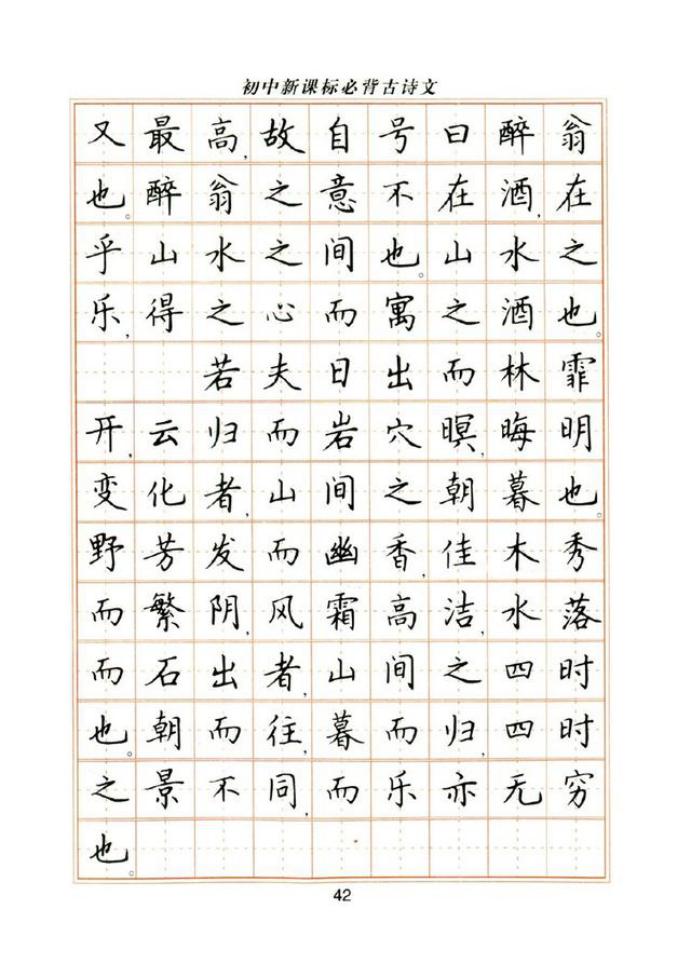 初中新课标必背古诗文
又最高,故自号曰醉翁
也。醉翁之意不在酒,在
乎山水之间也。山水之
乐,得之心而寓之酒也。
若夫日出而林霏
开,云归而岩穴暝,晦明
变化者,山间之朝暮也。
野芳发而幽香,佳木秀
而繁阴,风霜高洁,水落
而石出者,山间之四时
也。朝而往,暮而归,四时
之景不同,而乐亦无穷
也。
42